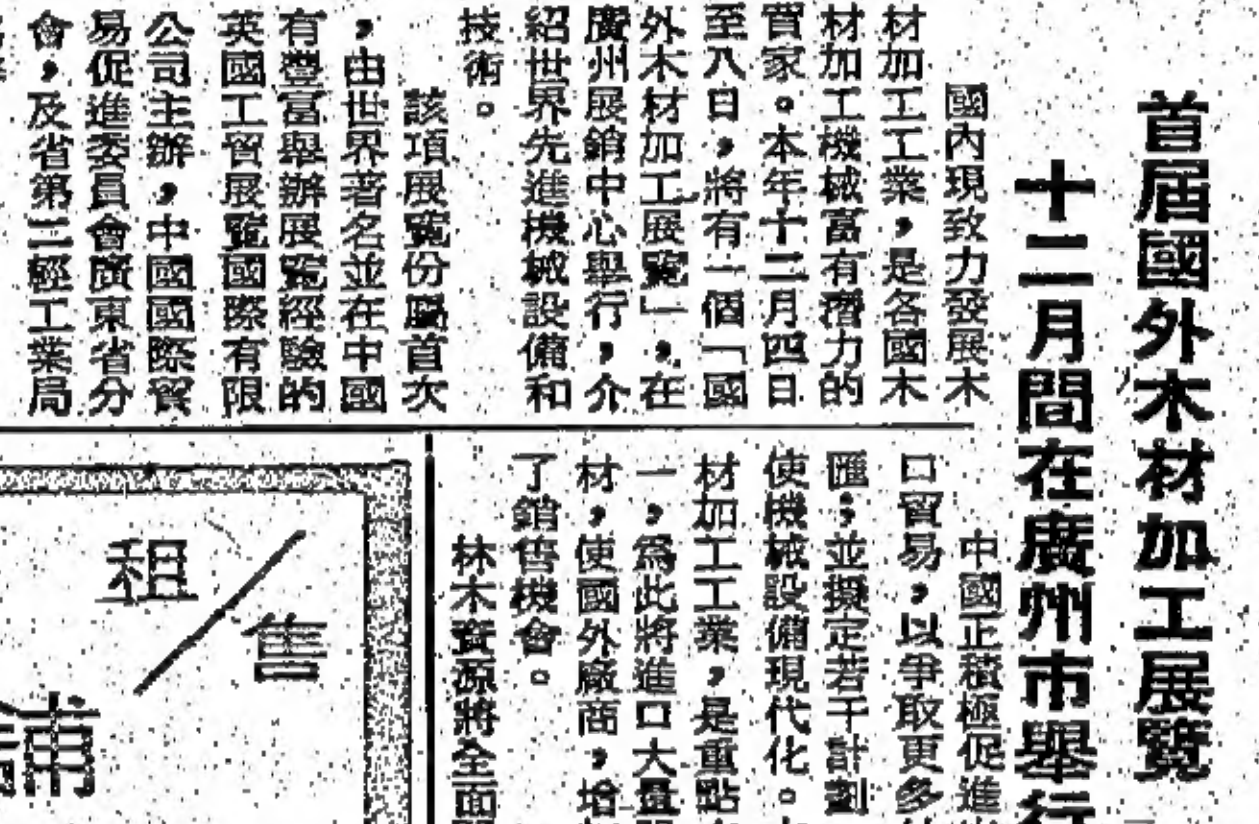 首屆國外木材加工展覽
十二月間在廣州市舉行
國內現致力發展木
材加工工業，是各國木
材加工機械富有潛力的
買家。本年十二月四日
至八日，將有一個「國
外木材加工展覽」，在
廣州展銷中心舉行，介
紹世界先進機械設備和
技術。
該項展覽份屬首次
，由世界著名並在中國
有豐富舉辦展覽經驗的
英國工貿展覽國際有限
公司主辦，中國國際貿
易促進委員會廣東省分
會，及省第二輕工業局
中國正積極促進
口貿易，以爭取更多
匯；並擬定若干計劃
使機械設備現代化。
材加工工業，是重點
一，爲此將進口大量
材，使國外廠商，增
了銷售機會。
林木資源將全面
租／售
舖